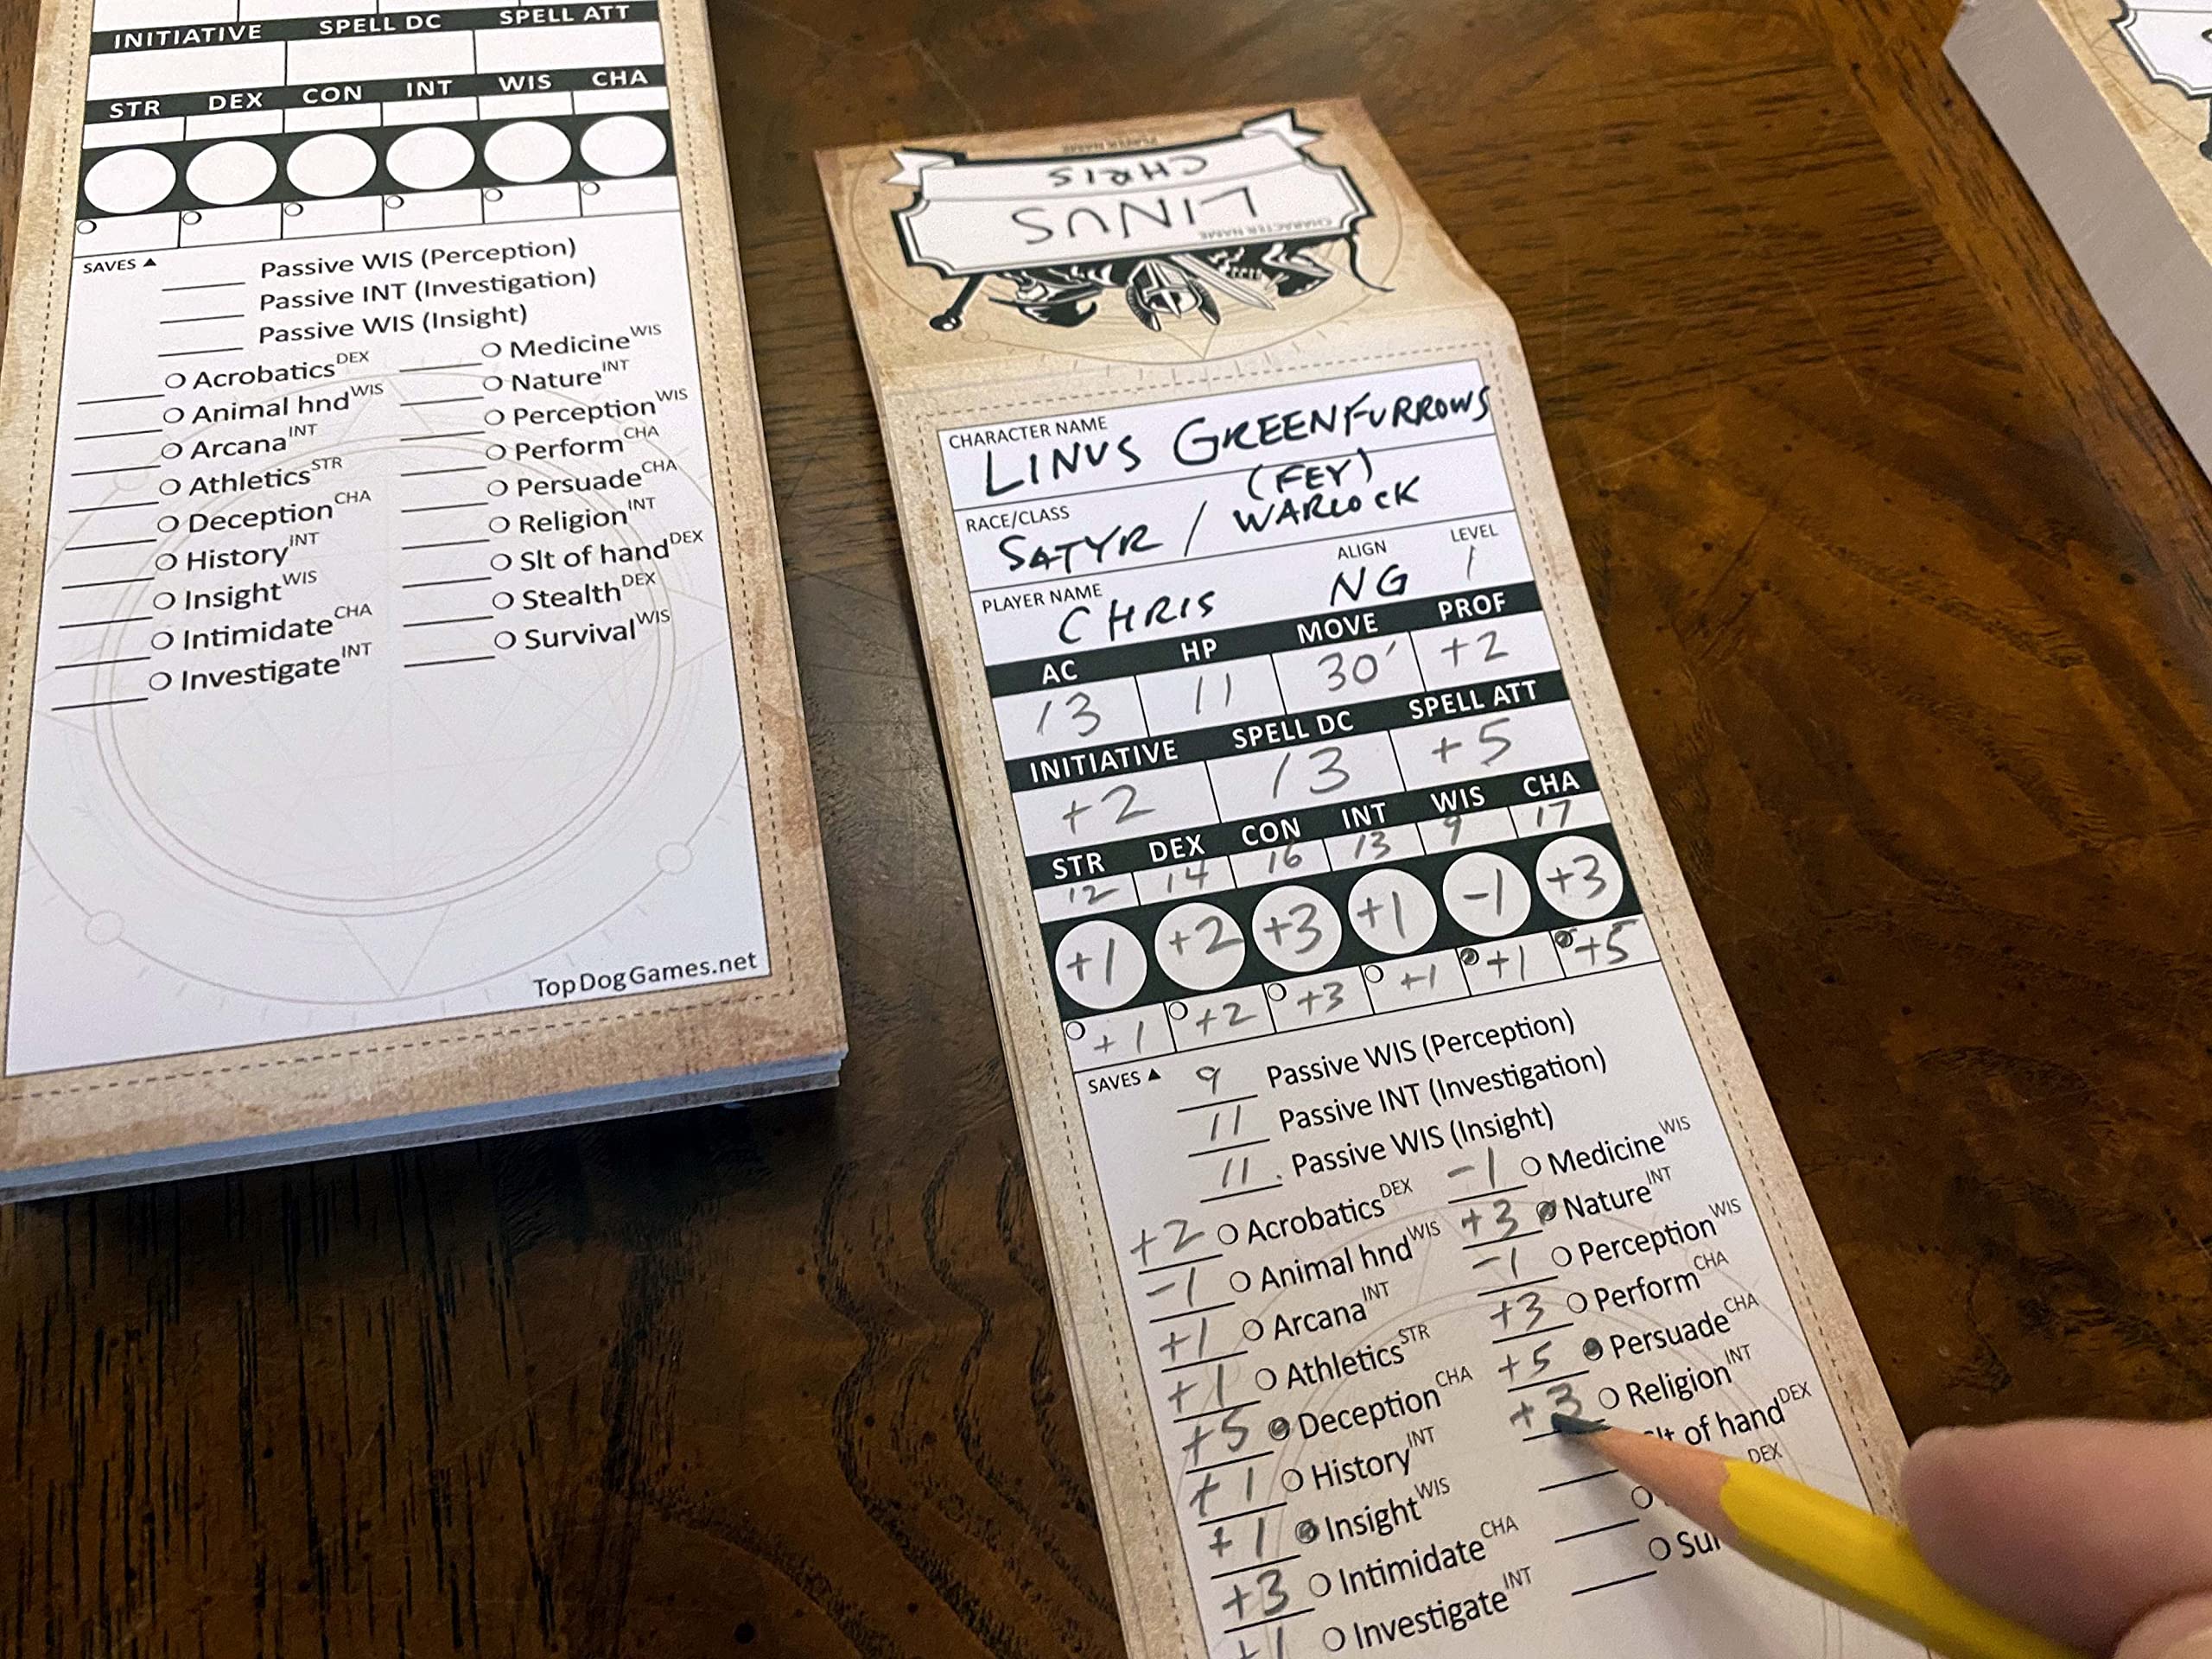 INITIATIVE SPELL DC SPELL ATT
STR DEX CON INT WIS CHA
SAVES ▲
Passive WIS (Perception)
Passive INT (Investigation)
Passive WIS (Insight)
Acrobatics DEX
Animal hnd WIS
Arcana INT
Athletics STR
Deception CHA
History INT
Insight WIS
Intimidate CHA
Investigate INT
Medicine WIS
Nature INT
Perception WIS
Perform CHA
Persuade CHA
Religion INT
Slt of hand DEX
Stealth DEX
Survival WIS
TopDogGames.net
PLAYER NAME
CHRIS
LINUS
CHARACTER NAME
CHARACTER NAME
LINUS GREENFURROWS
RACE/CLASS
SATYR / (FEY) WARLOCK
PLAYER NAME ALIGN LEVEL
CHRIS NG 1
AC HP MOVE PROF
13 11 30' +2
INITIATIVE SPELL DC SPELL ATT
+2 13 +5
STR DEX CON INT WIS CHA
12 14 16 13 9 17
+1 +2 +3 +1 -1 +3
+1 +2 +3 +1 +1 +5
SAVES ▲
9 Passive WIS (Perception)
11 Passive INT (Investigation)
11 Passive WIS (Insight)
+2 Acrobatics DEX
-1 Animal hnd WIS
+1 Arcana INT
+1 Athletics STR
+5 Deception CHA
+1 History INT
+1 Insight WIS
+3 Intimidate CHA
+1 Investigate INT
-1 Medicine WIS
+3 Nature INT
-1 Perception WIS
+3 Perform CHA
+5 Persuade CHA
+3 Religion INT
lt of hand DEX
DEX
Sur